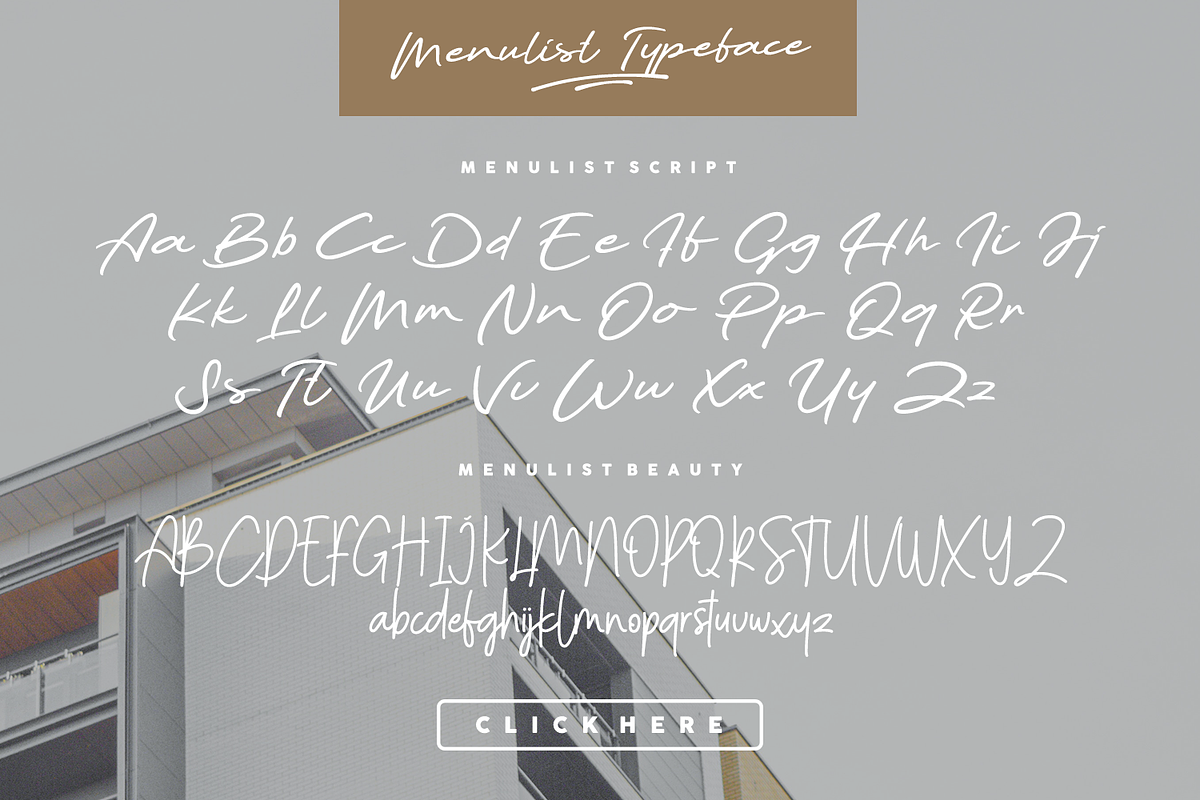 Menulist Typeface
MENULIST SCRIPT
Aa Bb Cc Dd Ee Ff Gg Hh Ii Jj
Kk Ll Mm Nn Oo Pp Qq Rr
Ss Tt Uu Vv Ww Xx Yy Zz
MENULIST BEAUTY
ABCDEFGHIJKLMNOPQRSTUVWXYZ
abcdefghijklmnopqrstuvwxyz
CLICK HERE